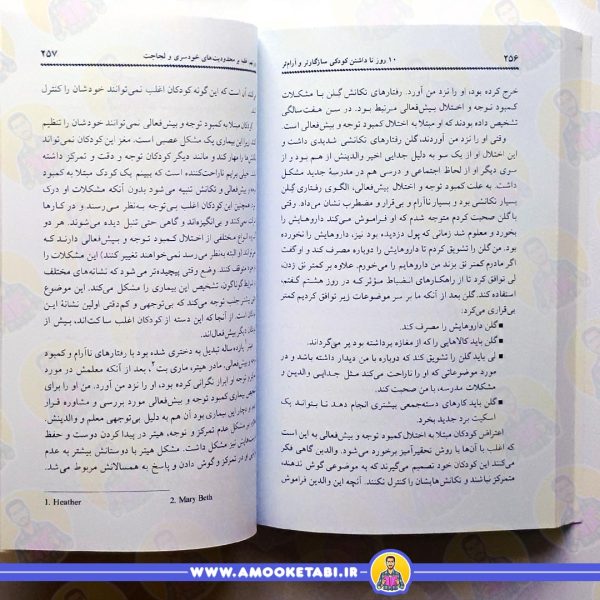 ۲۵۶
۱۰ روز تا داشتن کودکی سازگارتر و آرام‌تر
خرج کرده بود، او را نزد من آورد. رفتارهای تکانشی گلن با مشکلات
کمبود توجه و اختلال بیش‌فعالی مرتبط بود. در سن هفت‌سالگی
تشخیص داده بودند که او مبتلا به اختلال کمبود توجه و بیش‌فعالی است.
وقتی او را نزد من آوردند، گلن رفتارهای تکانشی شدیدی داشت و
این اختلال او از یک سو به دلیل جدایی اخیر والدینش از هم بود و از
سوی دیگر او از لحاظ اجتماعی و درسی هم در مدرسهٔ جدید مشکل
داشت. به علت کمبود توجه و اختلال بیش‌فعالی، الگوی رفتاری گلن
بسیار تکانشی بود و بسیار ناآرام و بی‌قرار و مضطرب نشان می‌داد. وقتی
با گلن صحبت کردم متوجه شدم که او فراموش می‌کند داروهایش را
بخورد و معلوم شد زمانی که پول دزدیده بود، نیز، داروهایش را نخورده
بود. من گلن را تشویق کردم تا داروهایش را دوباره مصرف کند و او گفت
اگر مادرم کمتر نق بزند من داروهایم را می‌خورم. علاوه بر کمتر نق زدن،
لی توافق کرد تا از راهکارهای انضباط مؤثر که در روز هشتم گفتم،
استفاده کند. گلن بعد از آنکه ما بر سر موضوعات زیر توافق کردیم کمتر
بی‌قراری می‌کرد.
■ گلن داروهایش را مصرف کند.
■ گلن باید کالاهایی را که از مغازه برداشته بود پر می‌گرداند.
■ لی باید گلن را تشویق کند که دوباره با من دیدار داشته باشد و در
مورد موضوعاتی که او را ناراحت می‌کند مثل جدایی والدین و
مشکلات مدرسه، با من صحبت کند.
■ گلن باید کارهای دسته‌جمعی بیشتری انجام دهد تا بتواند یک
اسکیت برد جدید بخرد.
اعتراض کودکان مبتلا به اختلال کمبود توجه و بیش‌فعالی به این است
که اغلب با آن‌ها با روش تحقیرآمیز برخورد می‌شود. والدین گاهی فکر
می‌کنند این کودکان خود تصمیم می‌گیرند که به موضوعی گوش ندهند،
متمرکز نباشند و تکانش‌هایشان را کنترل نکنند. آنچه این والدین فراموش
غلبه بر محدودیت‌های خودسری و لجاجت
۲۵۷
آن است که این گونه کودکان اغلب نمی‌توانند خودشان را کنترل
مبتلا به کمبود توجه و بیش‌فعالی نمی‌توانند خودشان را تنظیم
این بیماری یک مشکل عصبی است. مغز این کودکان نمی‌تواند
را مهار کند و مانند دیگر کودکان توجه و دقت و تمرکز داشته
خیلی برایم ناراحت‌کننده است که ببینم یک کودک مبتلا به کمبود
بیش‌فعالی و تکانش تنبیه می‌شود بدون آنکه مشکلات او درک
همچنین این کودکان اغلب بی‌توجه به‌نظر می‌رسند و در کارها
می‌کنند و بی‌انگیزه‌اند و گاهی حتی تنبل دیده می‌شوند. هر دو
انواع مختلفی از اختلال کمبود توجه و بیش‌فعالی دارند که
(و البته به‌نظر می‌رسد نمی‌خواهند تغییر کنند) این مشکلات را
متوقف کنند. وضع وقتی پیچیده‌تر می‌شود که نشانه‌های مختلف
گوناگون، تشخیص این بیماری را مشکل می‌کند. این موضوع
جلب توجه می‌کند که بی‌توجهی و کم‌دقتی اولین نشانهٔ این
است. از آنجا که این دسته از کودکان اغلب ساکت‌اند، بیش از
بیش‌فعال‌اند.
یازده ساله تبدیل به دختری شده بود با رفتارهای ناآرام و کمبود
توجه. مادر هیتر، ماری بت²، بعد از آنکه معلمش در مورد
توجه او ابراز نگرانی کرده بود، او را نزد من آورد. من او را برای
بیماری کمبود توجه و بیش‌فعالی مورد بررسی و مشاوره قرار
دچار این بیماری بود آن هم به دلیل بی‌توجهی معلم و والدینش.
مشکل عدم تمرکز و توجه، هیتر در پیدا کردن دوست و حفظ
نیز مشکل داشت. مشکل هیتر با دوستانش بیشتر به عدم
او در تمرکز و گوش دادن و پاسخ به همسالانش مربوط می‌شد.
1. Heather 2. Mary Beth
WWW.AMOOKETABI.IR